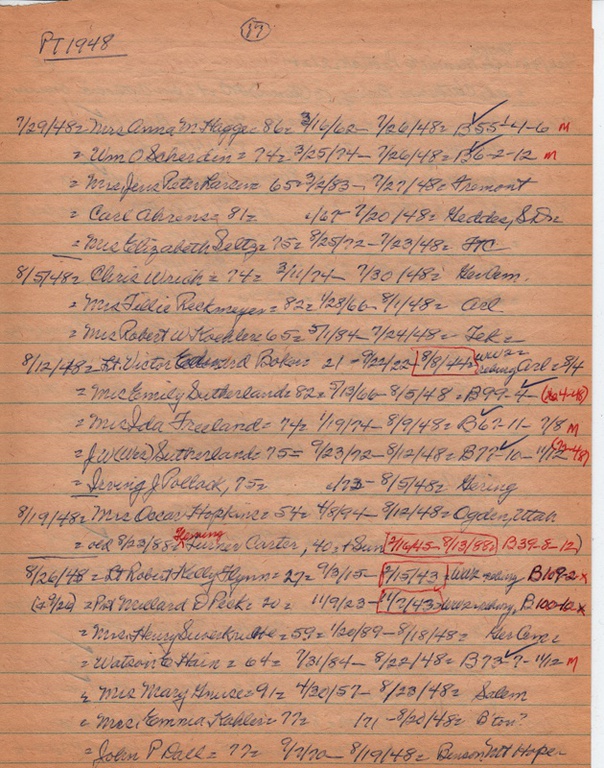 17
PT 1948
7/29/48 = Mrs Anna M. Hagge = 86 = 3/16/62 - 7/26/48 = B55-4-6 M
= Wm O Scherdin = 74 = 3/25/74 - 7/26/48 = B6-2-12 M
= Mrs, Jens Peter Larsen = 65 = 3/2/83 - 7/27/48 = Fremont
= Carl Ahrens = 81 = /67 - 7/20/48 = Geddes, S.D.
= Mrs Elizabeth Seltz = 75 = 8/25/72 - 7/23/48 =
8/5/48 = Chris = 74 = 3/11/74 - 7/30/48 = Ger Cem.
= Mrs Tillie Reckmeyer = 82 = 1/28/66 - 8/1/48 = Arl
= Mrs Robert W Koehler = 65 = 5/1/84 - 7/24/48 = Tek =
8/12/48 = Lt. Victor Edward Boken = 21 - 9/22/22 8/8/44 = WW2 = Arl = 8/4
= Mrs Emily Sutherland = 82 = 5/13/66 - 8/5/48 = B99-4-
= Mrs Ida Freeland = 74 = 1/19/74 - 8/9/48 = B67-11-7/8 M
= J.W (Wes) Sutherland = 75 = 9/23/72 - 8/12/48 = B77-10-11/12
= Irving J. Pollock, 75 = /73 - 8/5/48 = Gering
8/19/48 = Mrs Oscar Hopkins = 54 = 4/8/94 - 8/12/48 = Ogden, Utah
= old 8/23/88 = Fleming Turner Carter, 40 + Sun 2/16/45 - 8/13/88 = B39-8-12)
8/26/48 = Lt Robert Kelly Flynn = 27 = 9/3/15 - 2/15/43 = WW2 B109-2 x
= Pvt Millard D Peck = 20 = 11/9/23 - 11/2/43 = WW2 B100-10 x
= Mrs. Henry Suverkrubbe = 59 = 1/20/89 - 8/18/48 = Ger Cem =
= Watson C Hain = 64 = 7/31/84 - 8/22/48 = B73-7-11/12 M
= Mrs Mary Gnuse = 91 = 4/30/57 - 8/23/48 = Salem
= Mrs, Emma Kahler = 77 = /71 - 8/20/48 = B'ton?
= John P Dall = 77 = 9/7/70 - 8/19/48 = Benson, Mt Hope -